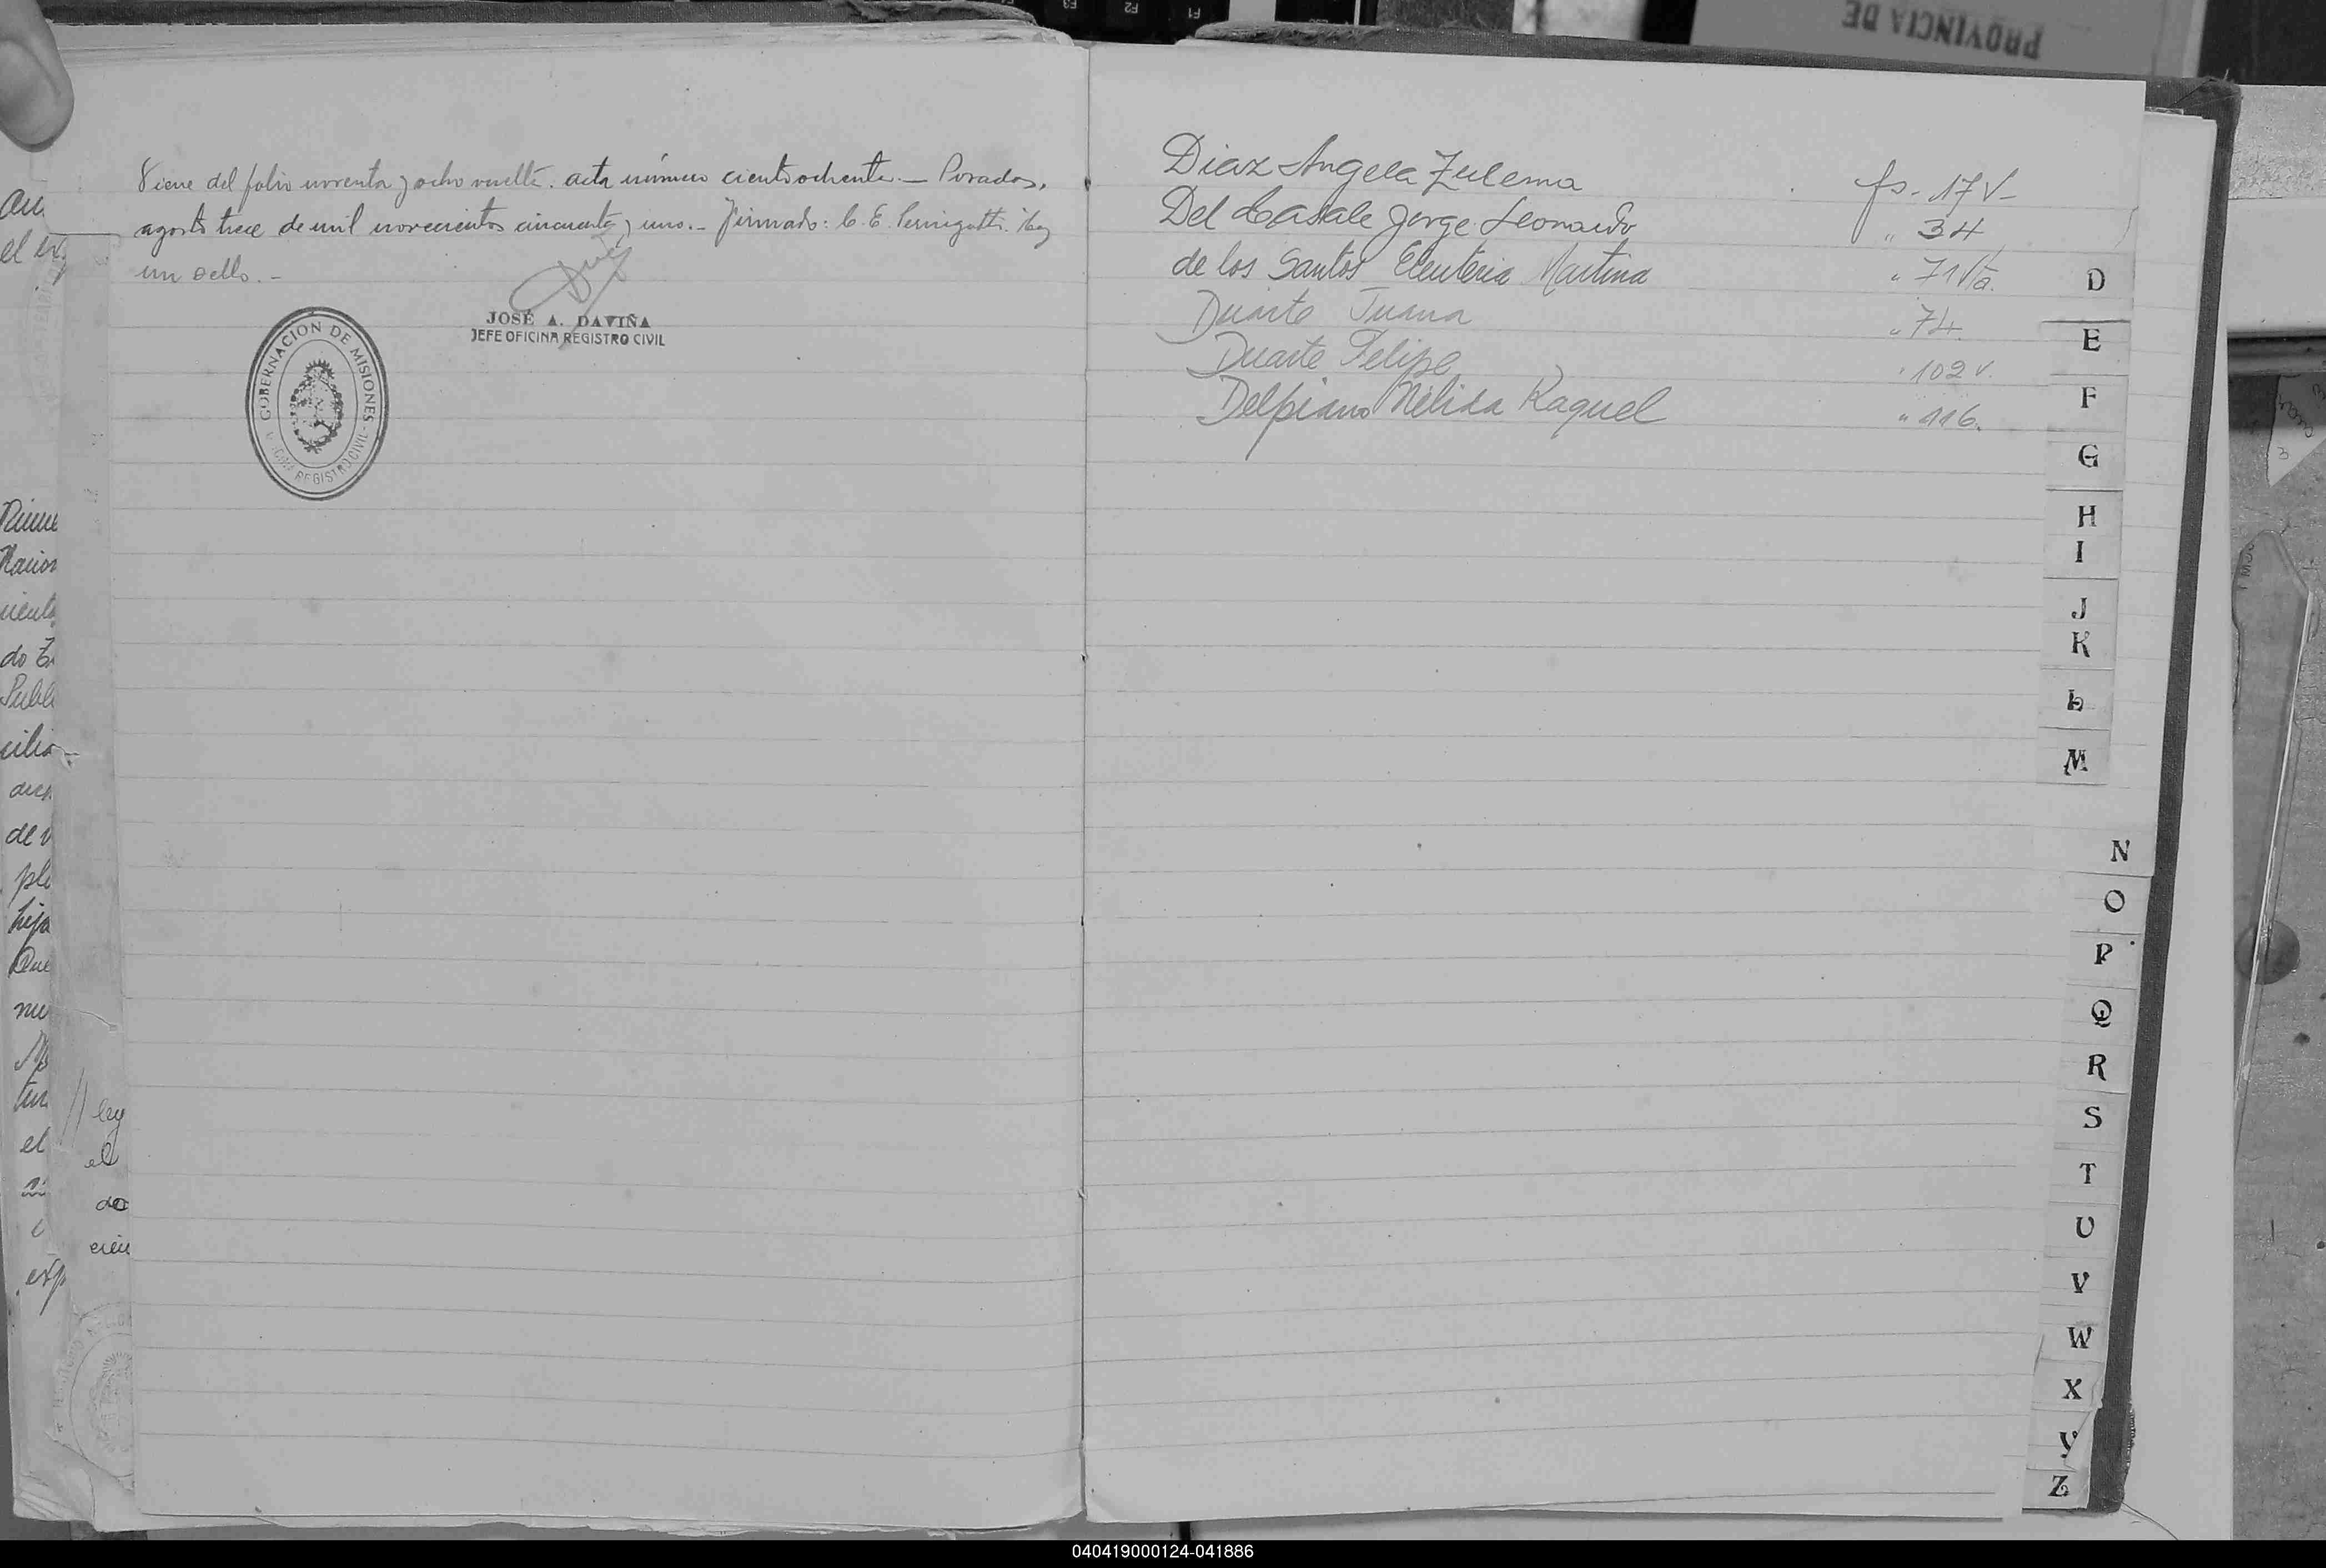 Viene del folio noventa y ocho vuelta. acta número ciento ochenta. — Posadas,
agosto trece de mil novecientos cincuenta y uno. - Firmado: C. E. Hay
un sello. -
JOSÉ A. DAVIÑA
JEFE OFICINA REGISTRO CIVIL
GOBERNACION DE MISIONES
REGISTRO CIVIL
Diaz Angela Zulema fs. 17 V-
Del Casale Jorge Leonardo " 34
de los Santos Eleuteria Martina " 71 Vta.
Duarte Juana " 74.
Duarte Felipe " 102 v.
Delpiano Nélida Raquel " 116.
D
E
F
G
H
I
J
K
L
M
N
O
P
Q
R
S
T
U
V
W
X
Y
Z
PROVINCIA DE
F3
F2
F1
el
do
Publ
de v
hija
Que
el
ley
el
do
040419000124-041886